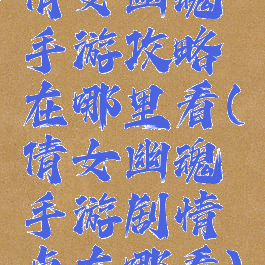 倩女幽魂
手游攻略
在哪里看(
倩女幽魂
手游剧情
在哪看)